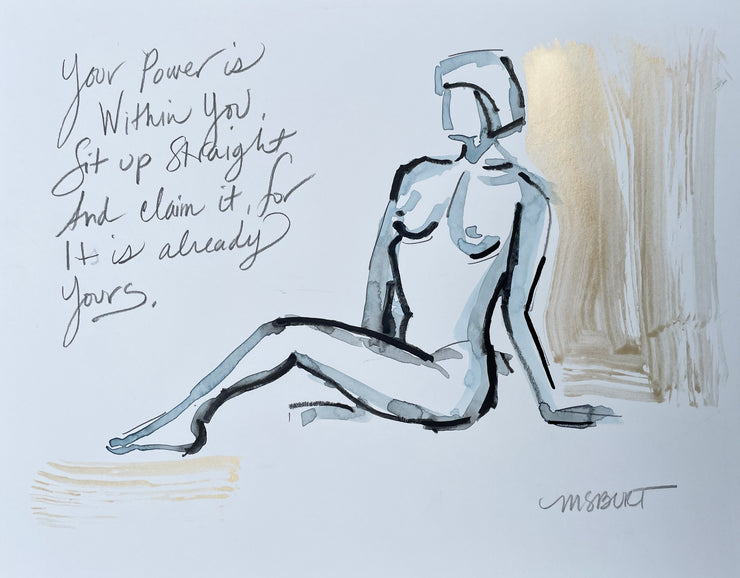 Your Power is
Within You.
Sit up straight
And claim it, for
It is already
Yours.
MSBURT